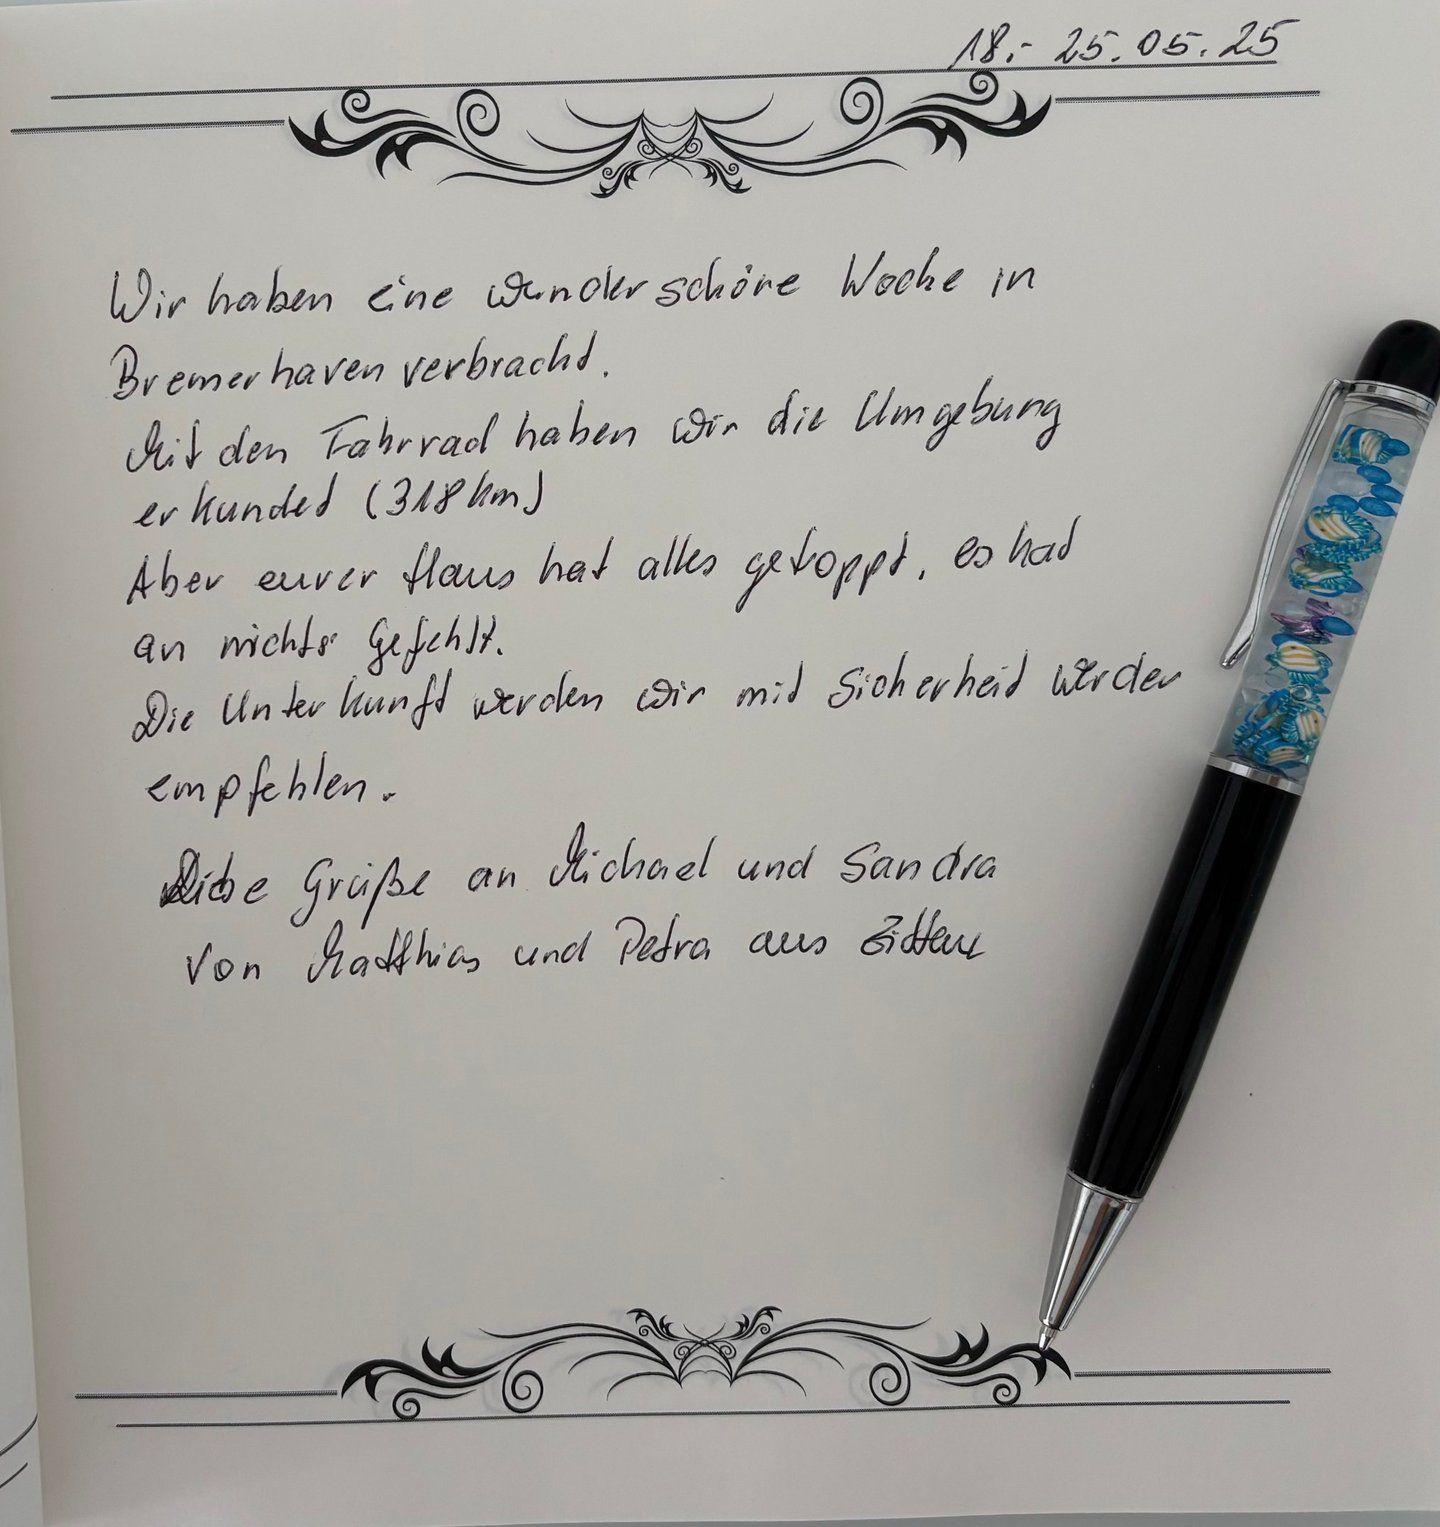 18.- 25.05.25
Wir haben eine wunderschöne Woche in
Bremerhaven verbracht.
Mit den Fahrrad haben wir die Umgebung
erkundet (318 km)
Aber eurer Haus hat alles getoppt, es hat
an nichts gefehlt.
Die Unterkunft werden wir mit Sicherheit werder
empfehlen.
Liebe Grüße an Michael und Sandra
von Matthias und Petra aus Zittau